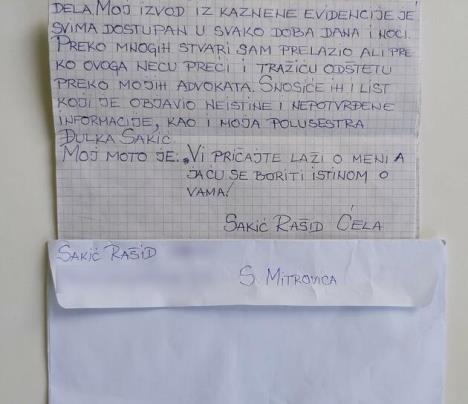 DELA MOJ IZVOD IZ KAZNENE EVIDENCIJE JE
SVIMA DOSTUPAN U SVAKO DOBA DANA I NOĆI.
PREKO MNOGIH STVARI SAM PRELAZIO ALI PRE
KO OVOGA NEĆU PREĆI I TRAŽIĆU ODŠTETU
PREKO MOJIH ADVOKATA. SNOSIĆE IH I LIST
KOJI JE OBJAVIO NEISTINE I NEPOTVRĐENE
INFORMACIJE, KAO I MOJA POLUSESTRA
ĐULKA SAKIĆ
MOJ MOTO JE: „VI PRIČAJTE LAŽI O MENI A
JA ĆU SE BORITI ISTINOM O
VAMA!
SAKIĆ RAŠID ĆELA
SAKIĆ RAŠID
S. MITROVICA